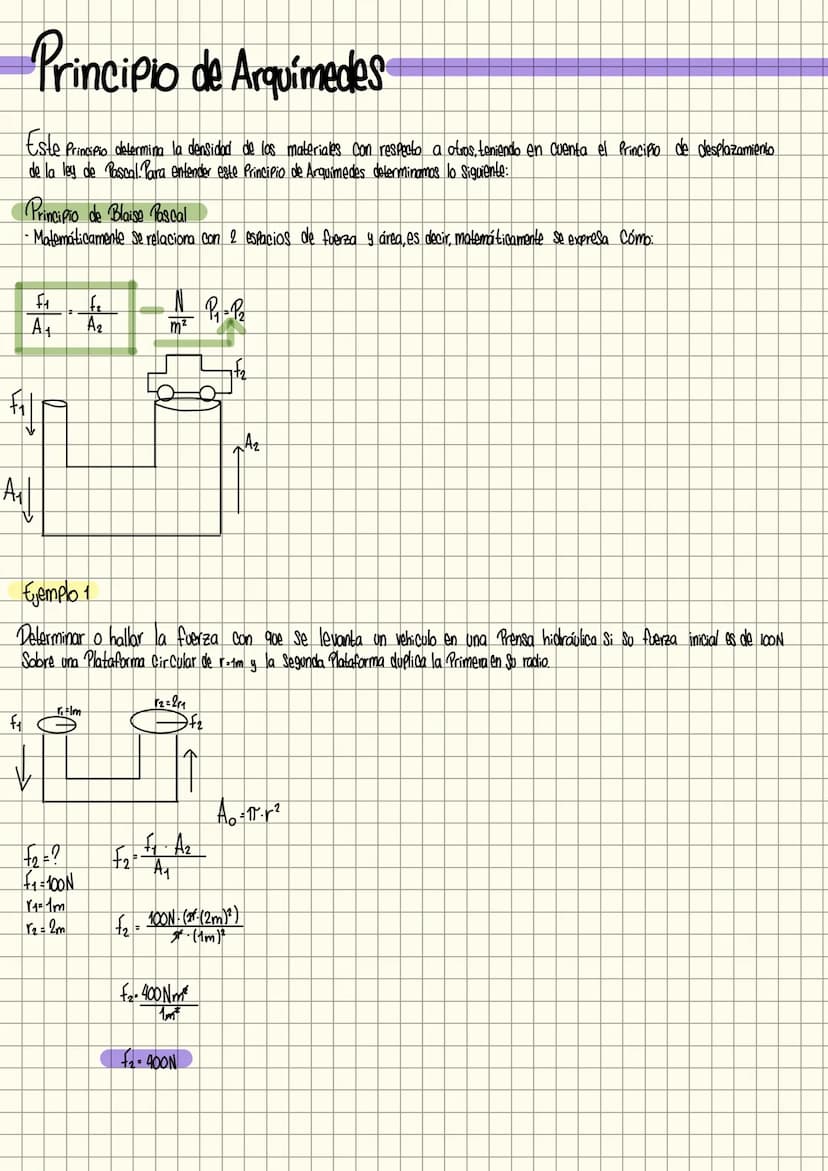 Principio de Arquímedes
Este Principio determina la densidad de los materiales con respecto a otros, teniendo en cuenta el Principio de desplazamiento
de la ley de Pascal. Para entender este Principio de Arquímedes determinamos lo Siguiente:
Principio de Blaise Pascal
- Matemáticamente Se relaciona con 2 espacios de fuerza y área, es decir, matemáticamente se expresa Cómo:
F1/A1 = F2/A2 - N/m² P1=P2
F2
F1
A2
A1
Ejemplo 1
Determinar o hallar la fuerza con que se levanta un vehiculo en una Prensa hidráulica Si Su fuerza inicial es de 100N
Sobre una Plataforma Circular de r=1m y la Segunda Plataforma duplica la Primera en Su radio.
r1=1m
r2=2r1
F1
F2
A○=π·r²
F2=?
F1=100N
r1=1m
r2=2m
F2= F1 · A2 / A1
F2= 100N·(π·(2m)²) / π·(1m)²
F2= 400Nm² / 1m²
F2= 400N